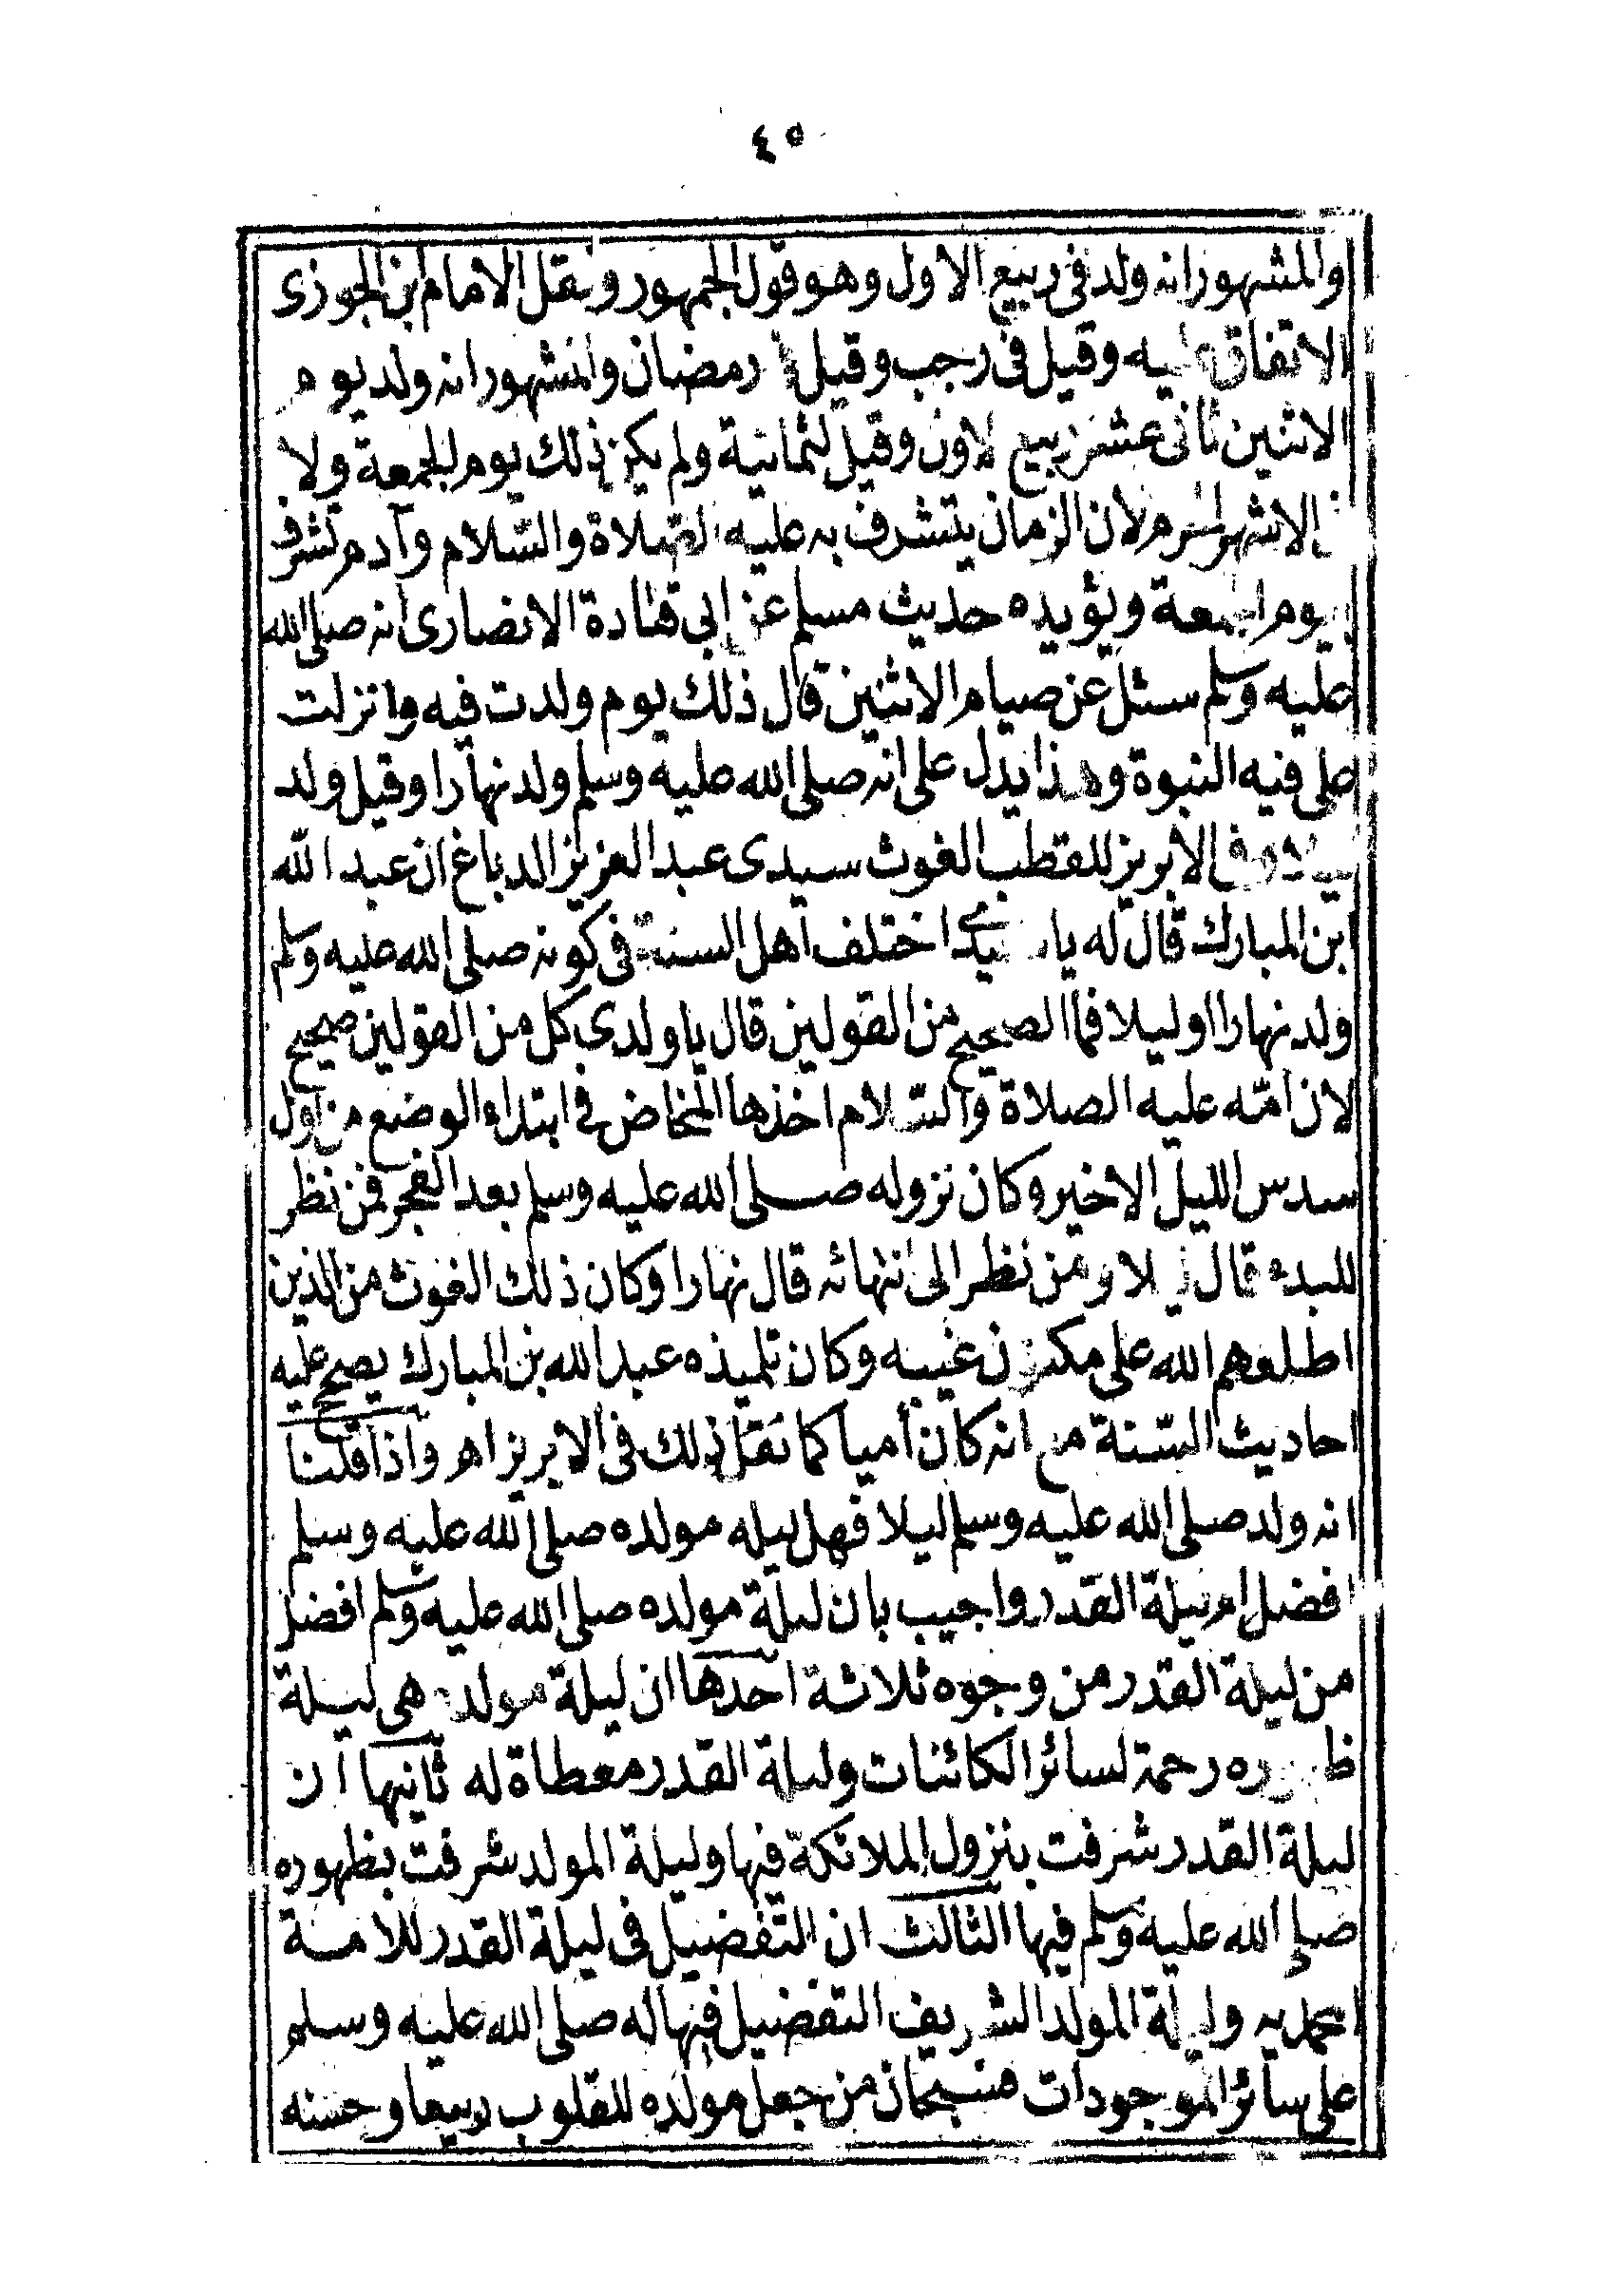 ٤٥
والمشهور انه ولد فى ربيع الاول وهو قول الجمهور ونقل الامام ابن الجوزى
الاتفاق عليه وقيل فى رجب وقيل فى رمضان والمشهور انه ولد يوم
الاثنين ثانى عشر ربيع الاول وقيل لثمانية ولم يكن ذلك يوم الجمعة ولا
فى الاشهر الحرم لان الزمان يتشرف به عليه الصلاة والسّلام وآدم تشرف
يوم الجمعة ويؤيده حديث مسلم عن ابى قتادة الانصارى انه صلى الله
عليه وسلم سئل عن صيام الاثنين قال ذلك يوم ولدت فيه وانزلت
على فيه النبوة وهذا يدل على انه صلى الله عليه وسلم ولد نهارا وقيل ولد
ليلا وفى الابريز للقطب الغوث سيدى عبد العزيز الدباغ ان عبد الله
ابن المبارك قال له يا سيدى اختلف اهل السنة فى كونه صلى الله عليه وسلم
ولد نهارا او ليلا فما الصحيح من القولين قال يا ولدى كل من القولين صحيح
لان امّه عليه الصلاة والسّلام اخذها المخاض فى ابتداء الوضع من اول
سدس الليل الاخير وكان نزوله صلى الله عليه وسلم بعد الفجر فمن نظر
للبدء قال ليلا ومن نظر الى انتهائه قال نهارا وكان ذلك الغوث من الذين
اطلعهم الله على مكنون غيبه وكان تلميذه عبد الله بن المبارك يصحح عليه
احاديث السّنة مع انه كان أميا كما نقل ذلك فى الابريز اهـ واذا قلنا
انه ولد صلى الله عليه وسلم ليلا فهل ليله مولده صلى الله عليه وسلم
افضل ام ليلة القدر واجيب بان ليلة مولده صلى الله عليه وسلم افضل
من ليلة القدر من وجوه ثلاثة احدها ان ليلة مولده هى ليلة
ظهوره رحمة لسائر الكائنات وليلة القدر معطاة له ثانيها ان
ليلة القدر شرفت بنزول الملائكة فيها وليلة المولد شرفت بظهوره
صلى الله عليه وسلم فيها الثالث ان التفضيل فى ليلة القدر للامة
المحمديه وليلة المولد الشريف التفضيل فيها له صلى الله عليه وسلم
على سائر الموجودات فسبحان من جعل مولده للقلوب ربيعا وحسنه